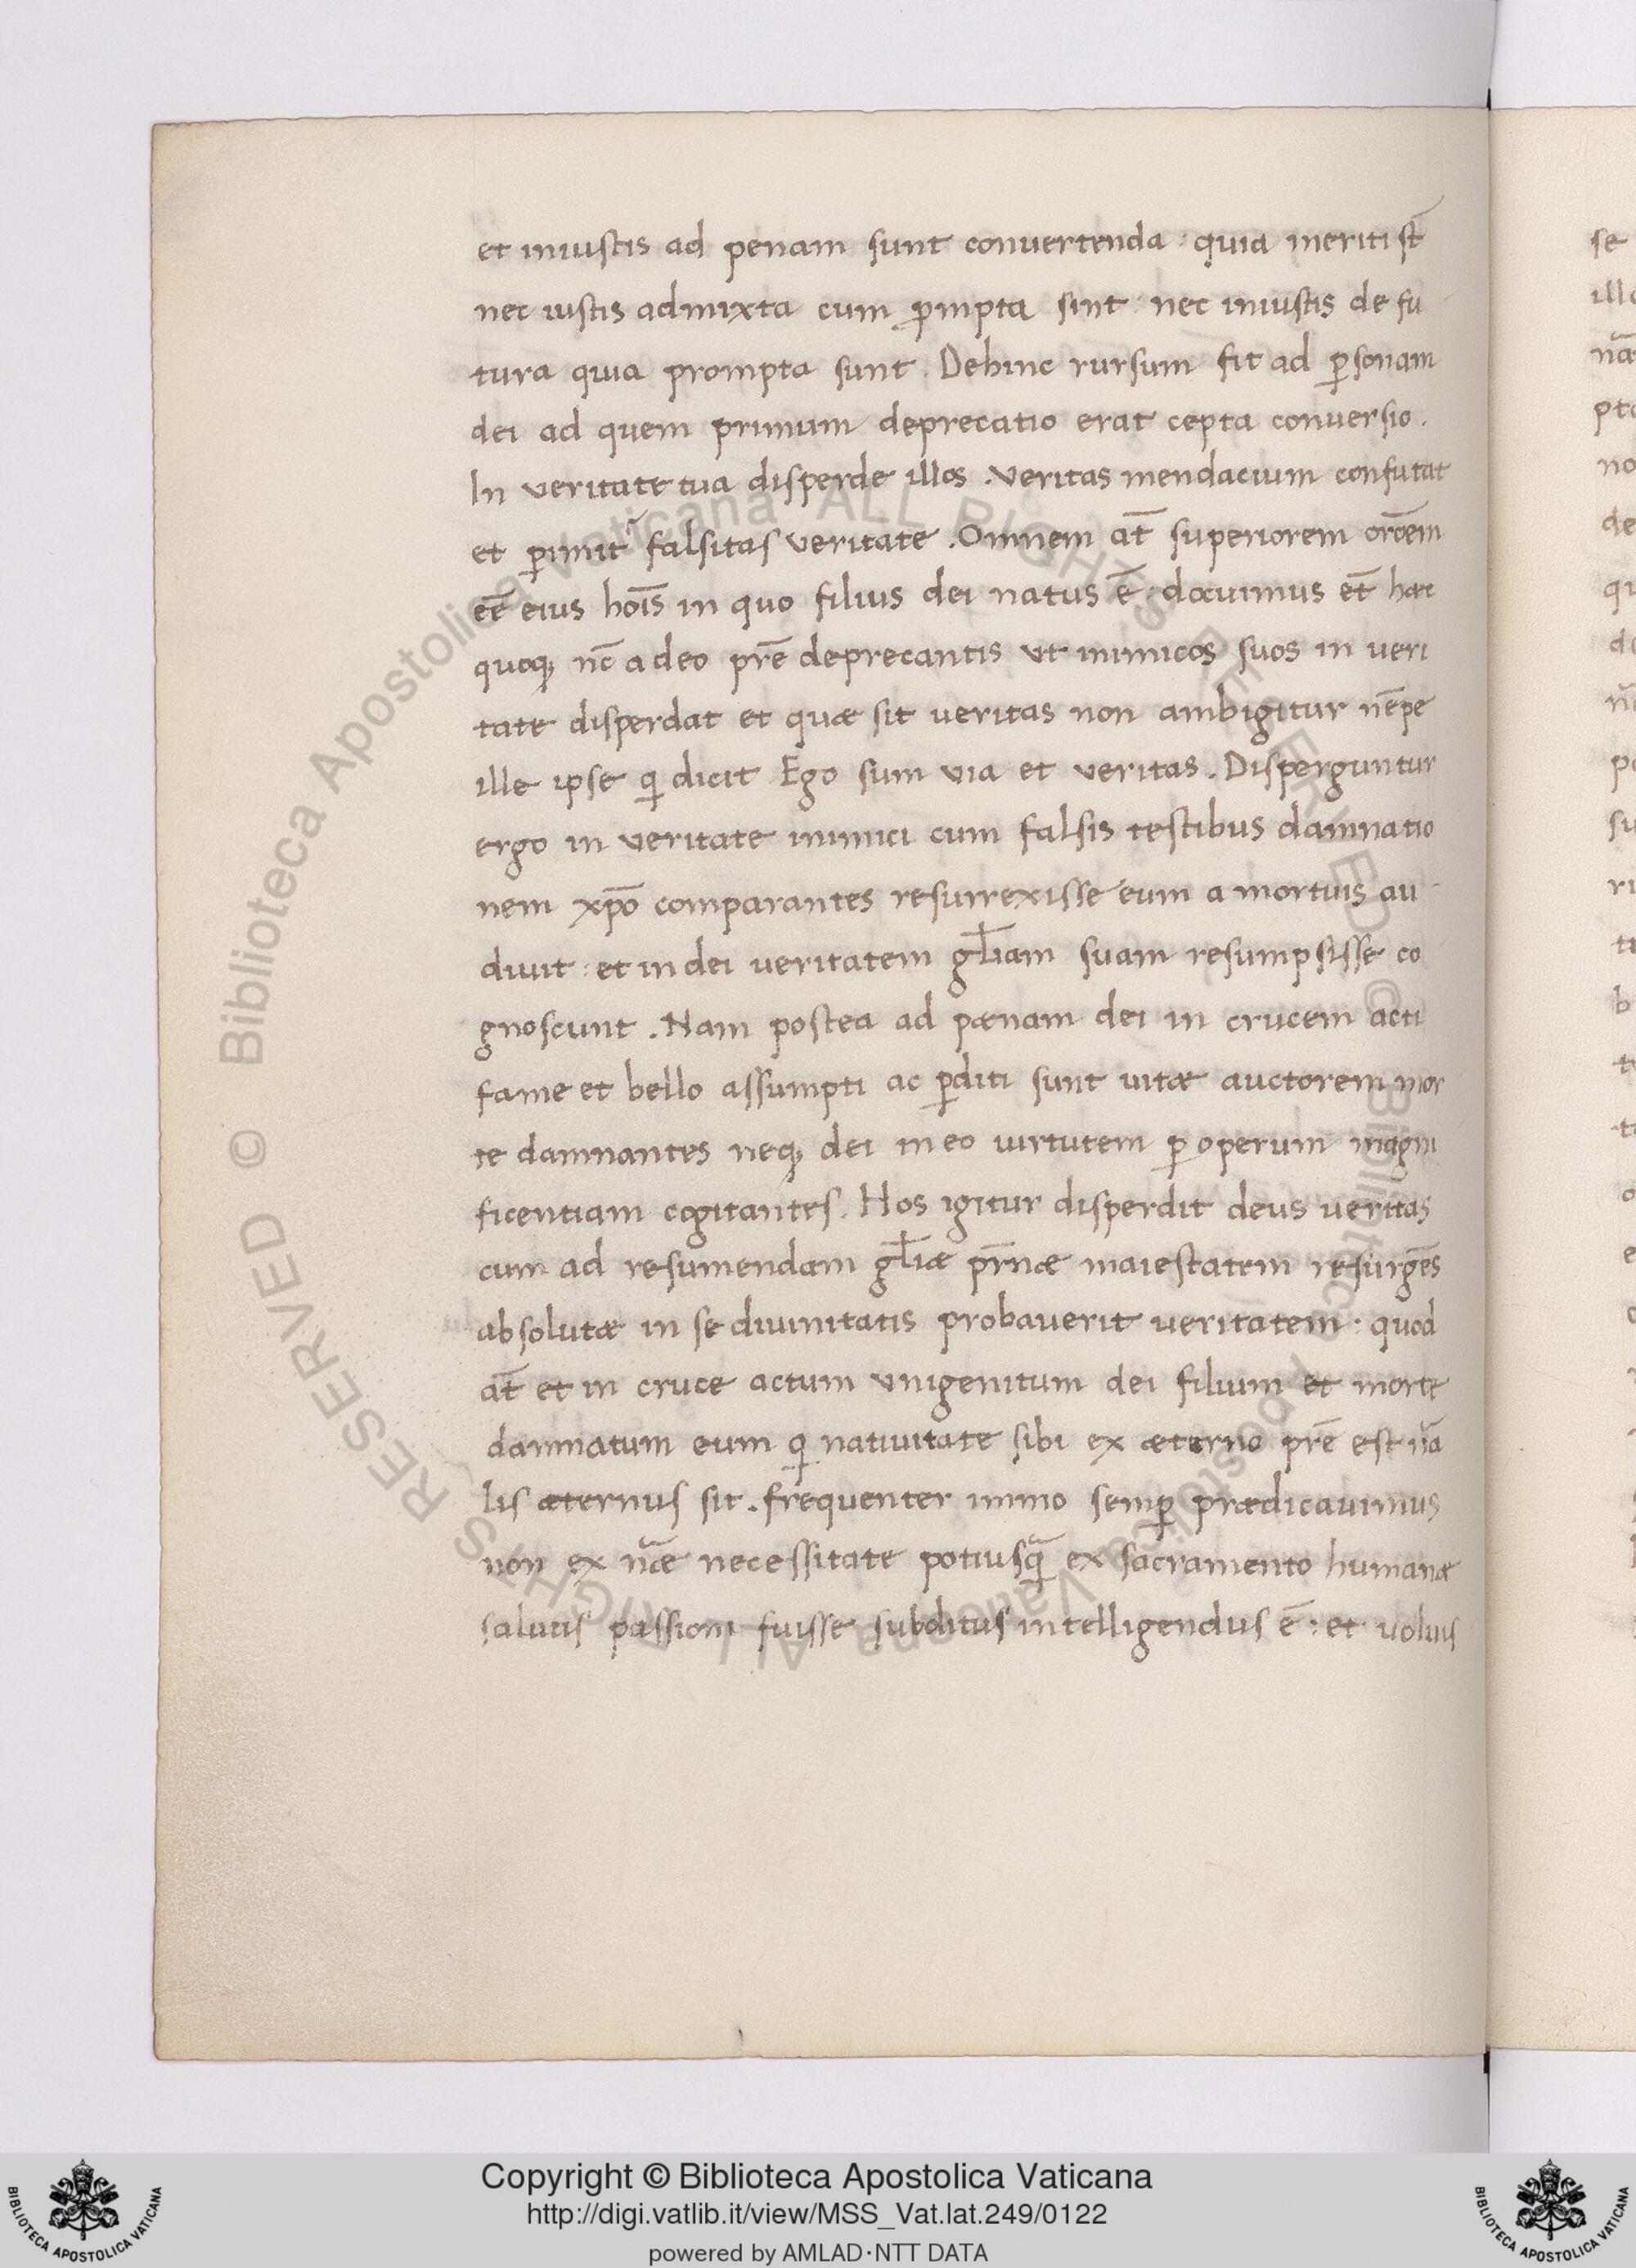 et iniustis ad penam sunt conuertenda : quia meriti st̄
nec iustis admixta cum p̱mpta sint : nec iniustis de fu
tura quia prompta sunt . Dehinc rursum fit ad p̱sonam
dei ad quem primum deprecatio erat cepta conuersio .
In veritate tua disperde illos . veritas mendacium confutat
et p̱imit᷑ falsitas veritate . Omnem at̄ superiorem orōem
eē eius hoīs in quo filius dei natus ē : docuimus et̄ haec
quoq; nc̄ a deo prē deprecantis vt inimicos suos in veri
tate disperdat et quæ sit veritas non ambigitur nēpe
ille ipse q̱ dicit Ego sum via et veritas . Disperguntur
ergo in veritate inimici cum falsis testibus damnatio
nem xp̄o comparantes resurrexisse eum a mortuis au
diuit : et in dei veritatem gl̄iam suam resumpsisse co
gnoscunt . Nam postea ad pænam dei in crucem acti
fame et bello assumpti ac p̱diti sunt uitæ auctorem mor
te damnantes neq; dei in eo uirtutem p̱ operum magni
ficentiam cogitantes . Hos igitur disperdit deus veritas
cum ad resumendam gl̄iæ pr̄næ maiestatem resurgēs
absolutæ in se diuinitatis probauerit veritatem : quod
at̄ et in cruce actum vnigenitum dei filium et morte
damnatum eum q̱ natiuitate sibi ex æterno prē est nā
lis æternus sit . frequenter immo semp̱ prædicauimus
non ex nāe necessitate potiusq̄ ex sacramento humanæ
salutis passioni fuisse subditus intelligendus ē : et uoluis
se
no
de
Copyright © Biblioteca Apostolica Vaticana
http://digi.vatlib.it/view/MSS_Vat.lat.249/0122
powered by AMLAD·NTT DATA
BIBLIOTECA APOSTOLICA VATICANA
BIBLIOTECA APOSTOLICA VATICANA
© Biblioteca Apostolica Vaticana ALL RIGHTS RESERVED © Biblioteca Apostolica Vaticana ALL RIGHTS RESERVED